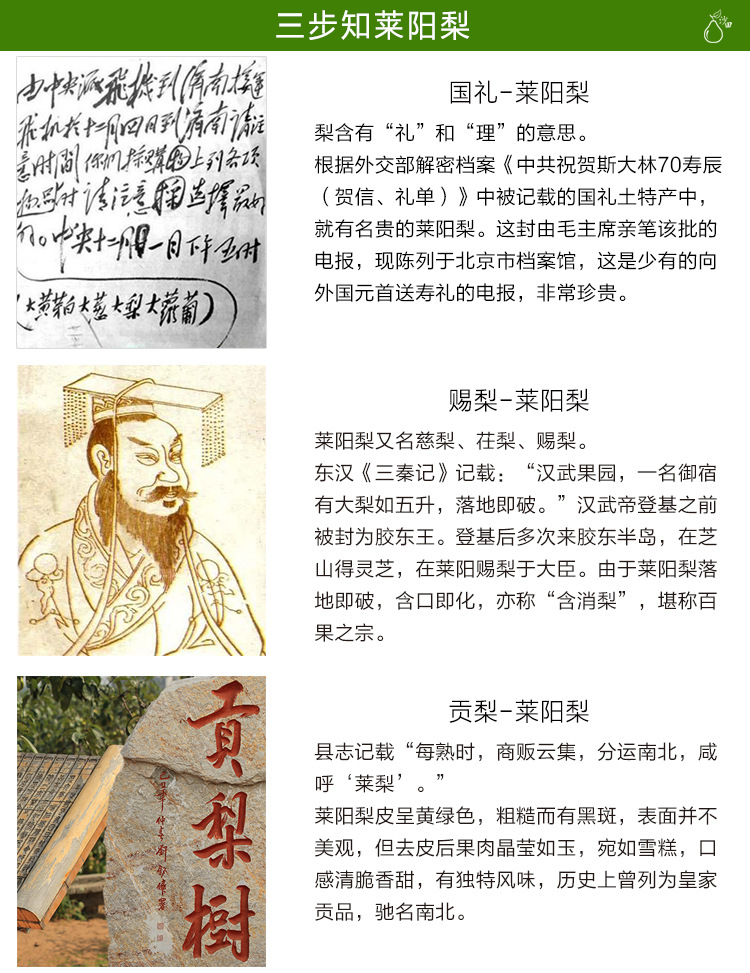 三步知莱阳梨
由中央派飛機到濟南接運
飛机於十二月四日到濟南请注
意时間你们採購的上到各項
请注意
选擇最好
的。中央十二月一日下午五时
(大黄芽白大葱大梨大蘿蔔)
国礼-莱阳梨
梨含有“礼”和“理”的意思。
根据外交部解密档案《中共祝贺斯大林70寿辰
（贺信、礼单）》中被记载的国礼土特产中，
就有名贵的莱阳梨。这封由毛主席亲笔该批的
电报，现陈列于北京市档案馆，这是少有的向
外国元首送寿礼的电报，非常珍贵。
赐梨-莱阳梨
莱阳梨又名慈梨、茌梨、赐梨。
东汉《三秦记》记载：“汉武果园，一名御宿
有大梨如五升，落地即破。”汉武帝登基之前
被封为胶东王。登基后多次来胶东半岛，在芝
山得灵芝，在莱阳赐梨于大臣。由于莱阳梨落
地即破，含口即化，亦称“含消梨”，堪称百
果之宗。
貢梨樹
贡梨-莱阳梨
县志记载“每熟时，商贩云集，分运南北，咸
呼‘莱梨’。”
莱阳梨皮呈黄绿色，粗糙而有黑斑，表面并不
美观，但去皮后果肉晶莹如玉，宛如雪糕，口
感清脆香甜，有独特风味，历史上曾列为皇家
贡品，驰名南北。